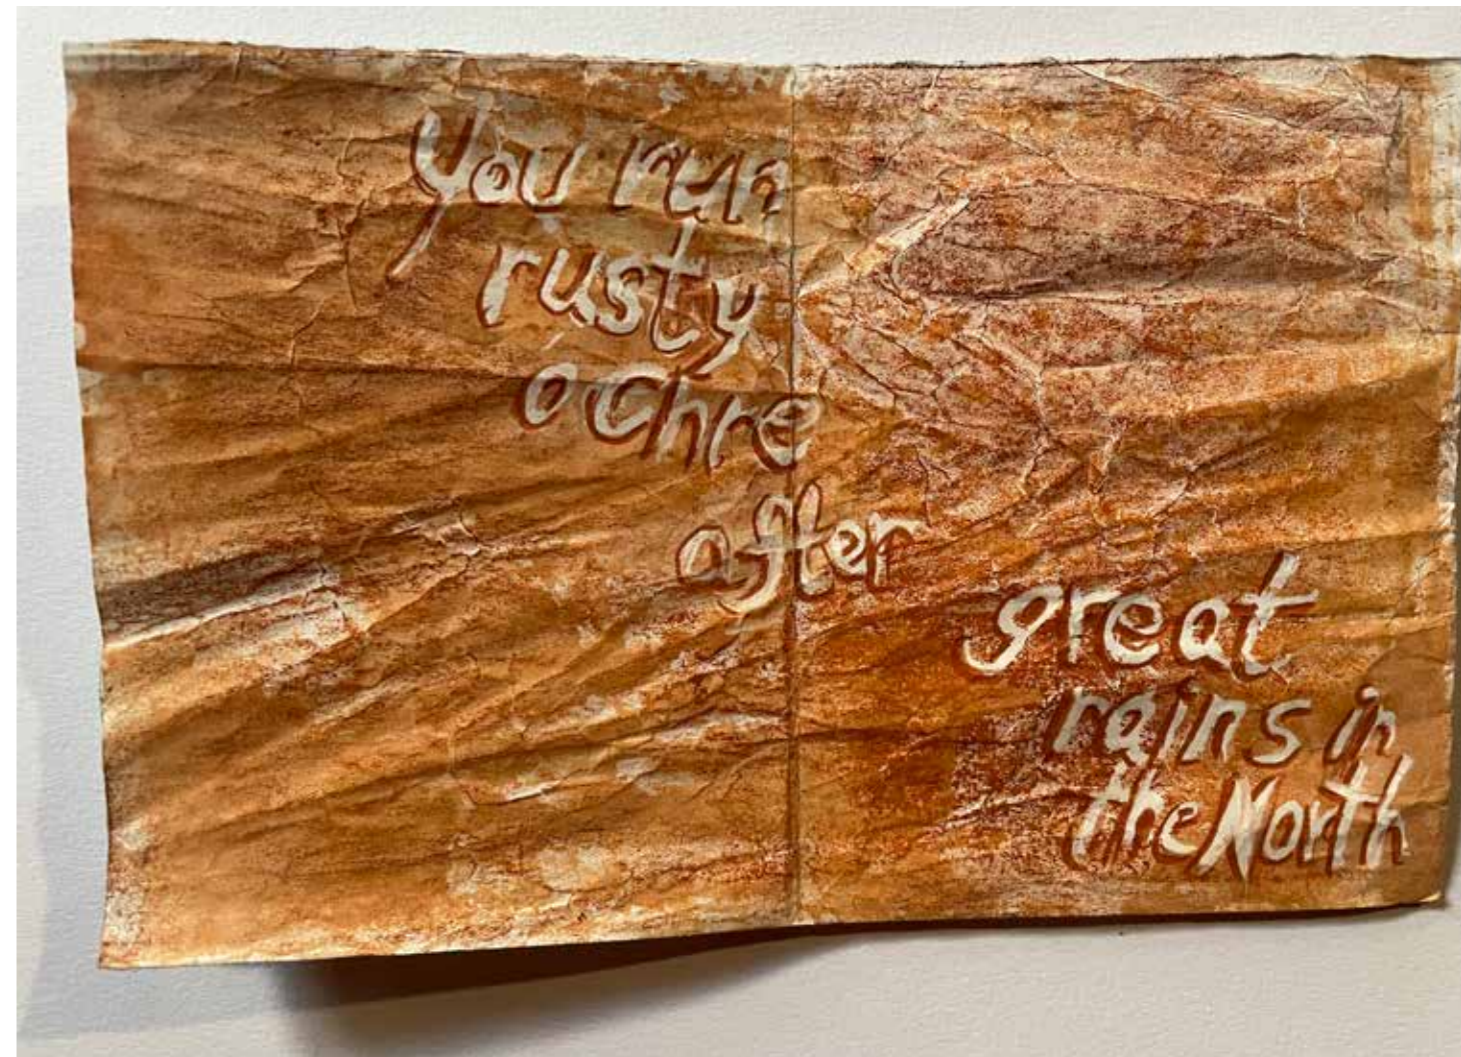 you run
rusty
ochre
after
great
rains in
the North